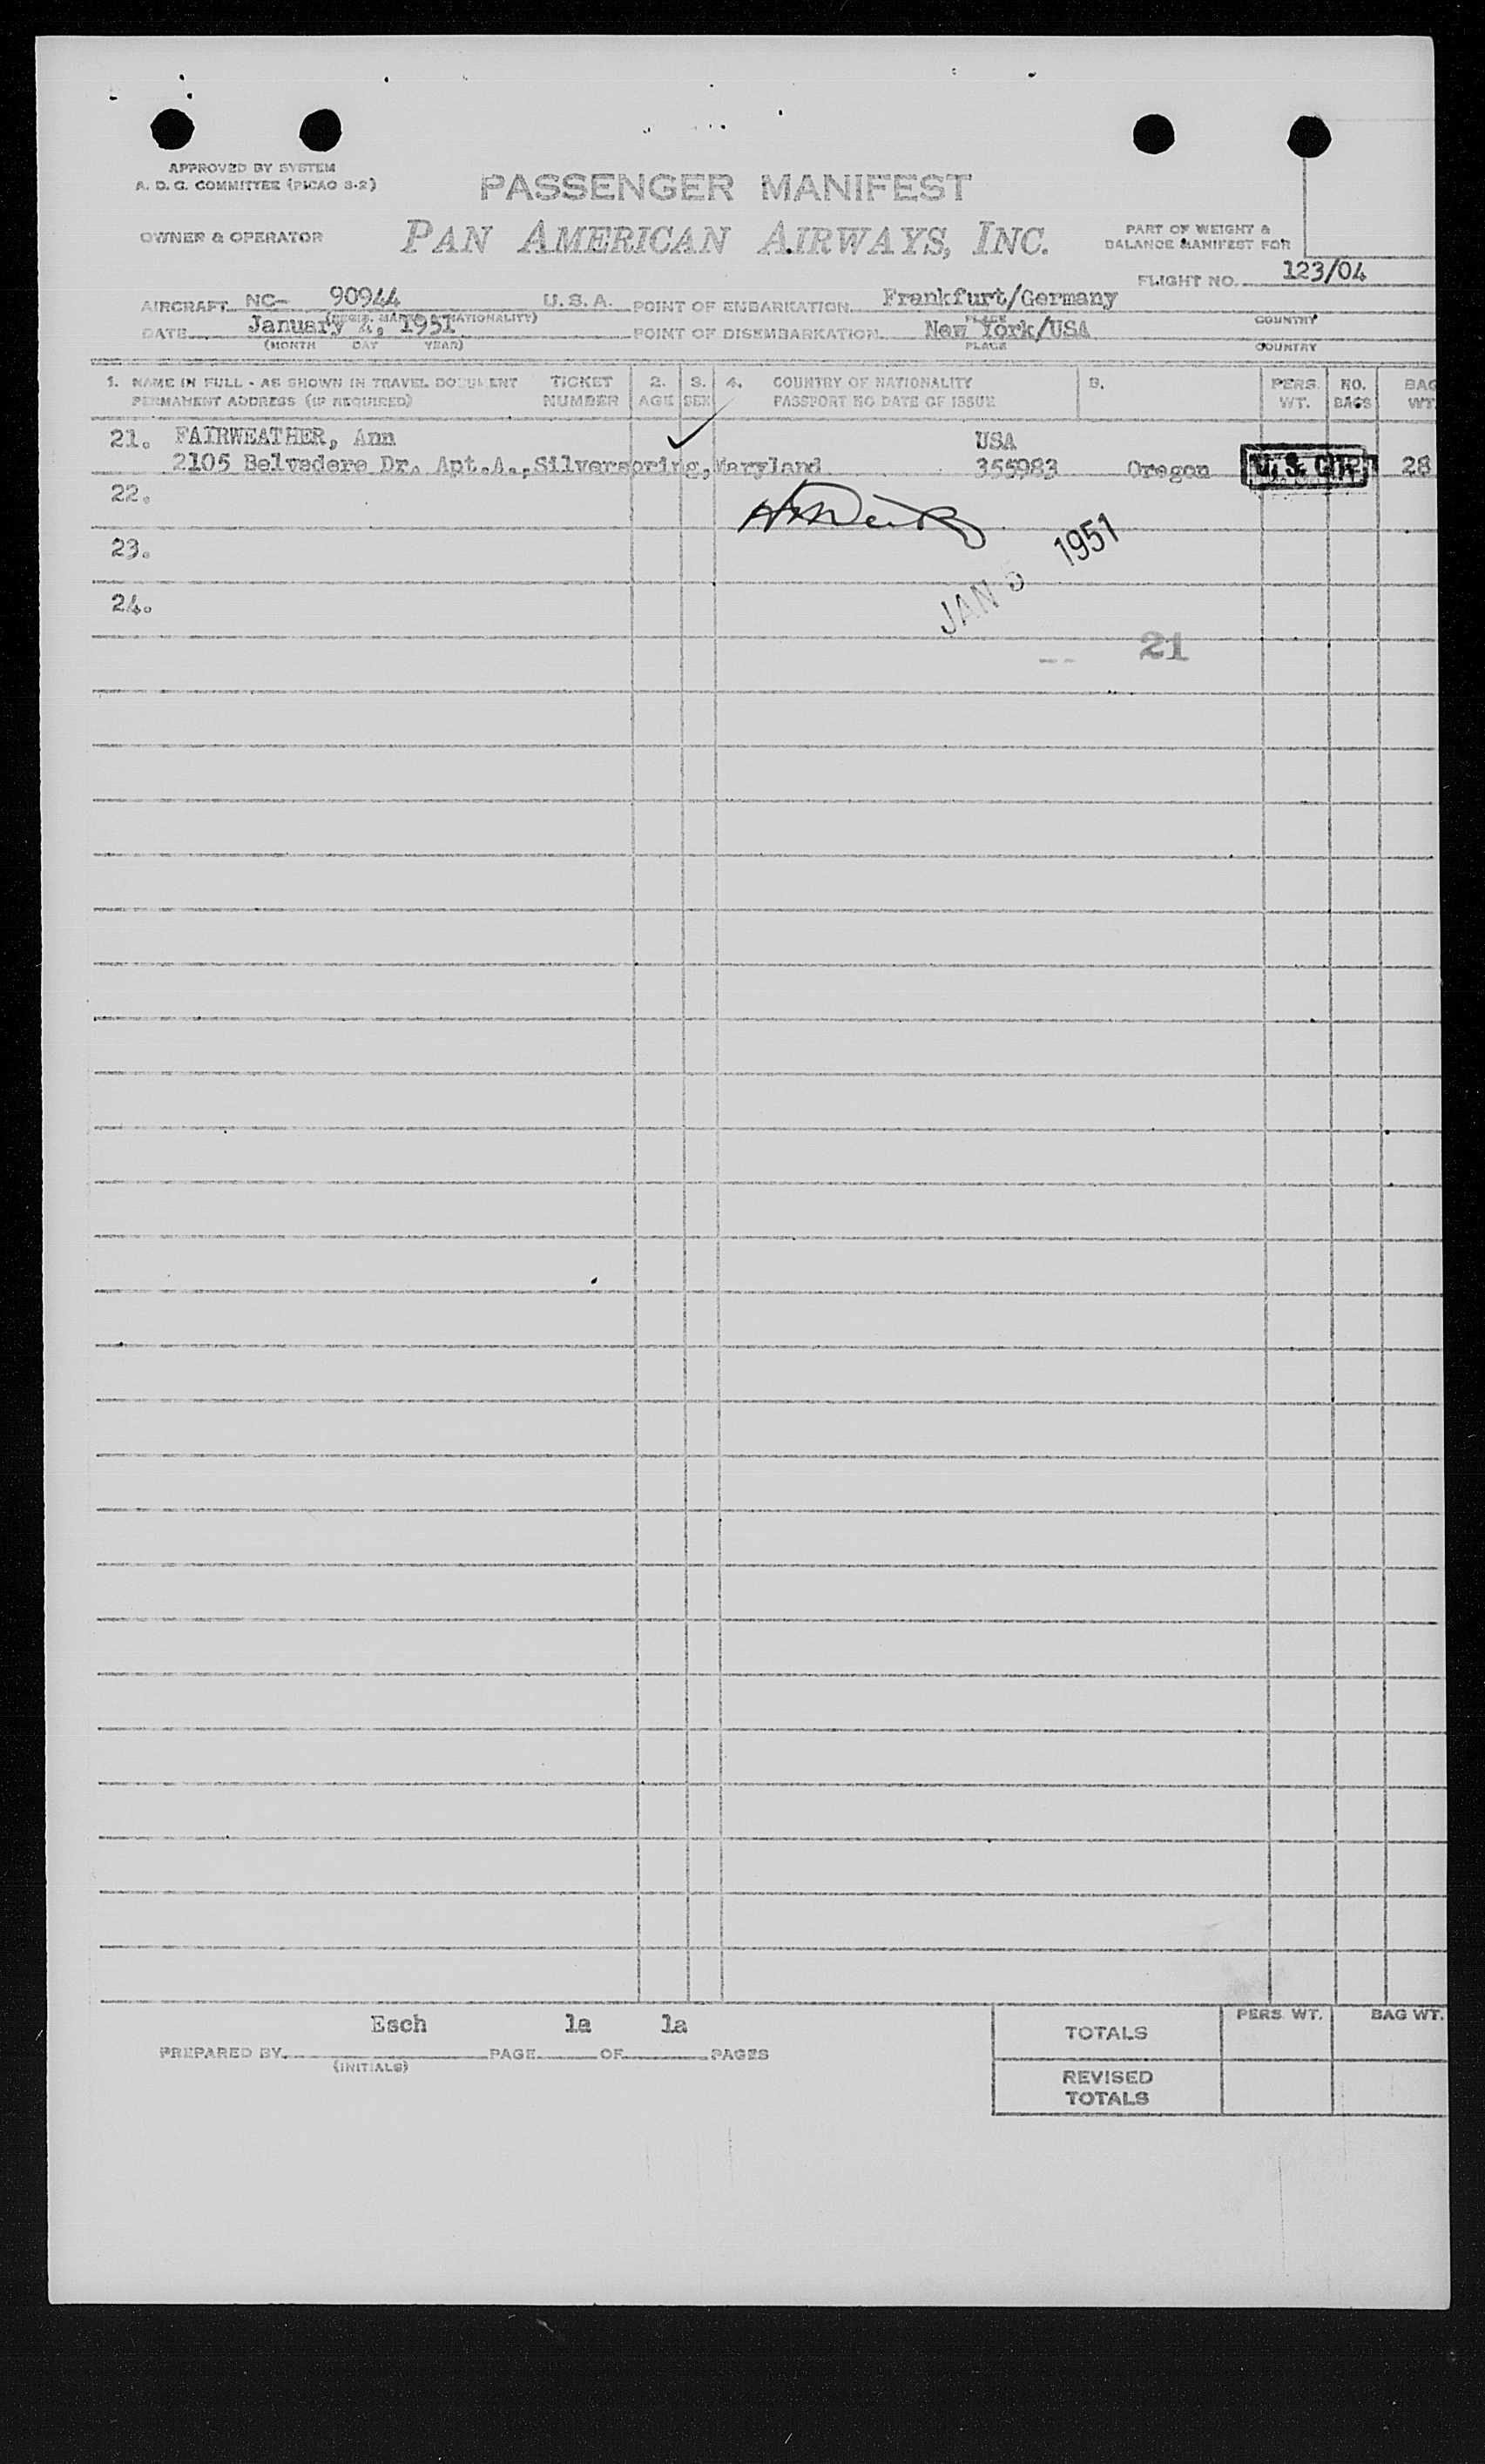 APPROVED BY SYSTEM
A. D. C. COMMITTEE (PICAO 3-2)
PASSENGER MANIFEST
OWNER & OPERATOR
PAN AMERICAN AIRWAYS, INC.
PART OF WEIGHT &
BALANCE MANIFEST FOR
FLIGHT NO. 123/04
AIRCRAFT NC- 90944 U. S. A. POINT OF EMBARKATION Frankfurt/Germany
(REGIS. MARKS & NATIONALITY) PLACE COUNTRY
DATE January 4, 1951 POINT OF DISEMBARKATION New York/USA
(MONTH DAY YEAR) PLACE COUNTRY
1. NAME IN FULL - AS SHOWN IN TRAVEL DOCUMENT TICKET 2. 3. 4. COUNTRY OF NATIONALITY 5. PERS. NO. BAG
PERMANENT ADDRESS (IF REQUIRED) NUMBER AGE SEX PASSPORT NO DATE OF ISSUE WT. BAGS WT.
21. FAIRWEATHER, Ann USA
2105 Belvedere Dr. Apt.A., Silverspring, Maryland 355983 Oregon U. S. CIT. 28
22.
23.
JAN 1951
24.
21
Esch 1a 1a
PREPARED BY PAGE OF PAGES
(INITIALS)
PERS. WT. BAG WT.
TOTALS
REVISED
TOTALS